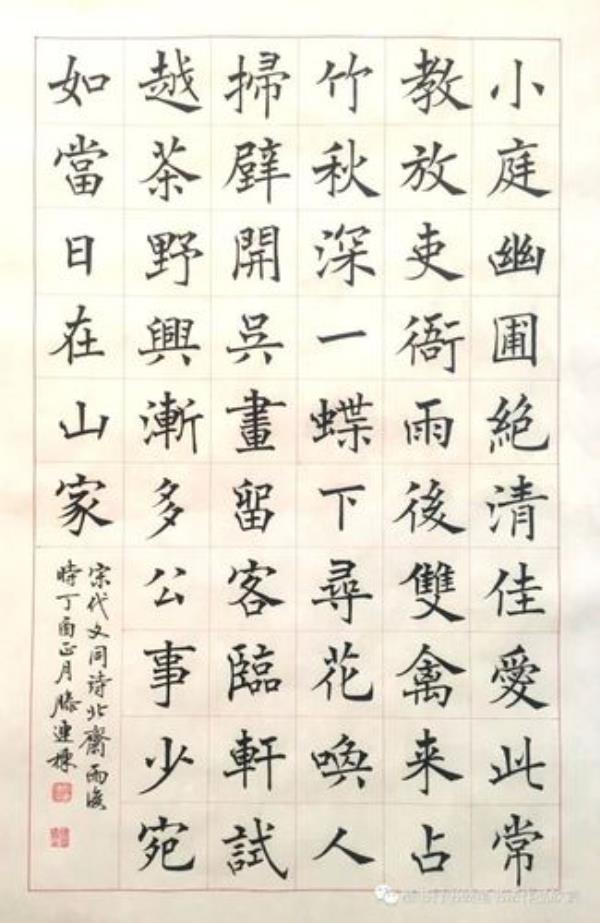 小庭幽圃絶清佳愛此常
教放吏衙雨後雙禽来占
竹秋深一蝶下尋花喚人
掃壁開吳畫留客臨軒試
越茶野興漸多公事少宛
如當日在山家
宋代文同诗北齋雨後
時丁酉正月滕連棟